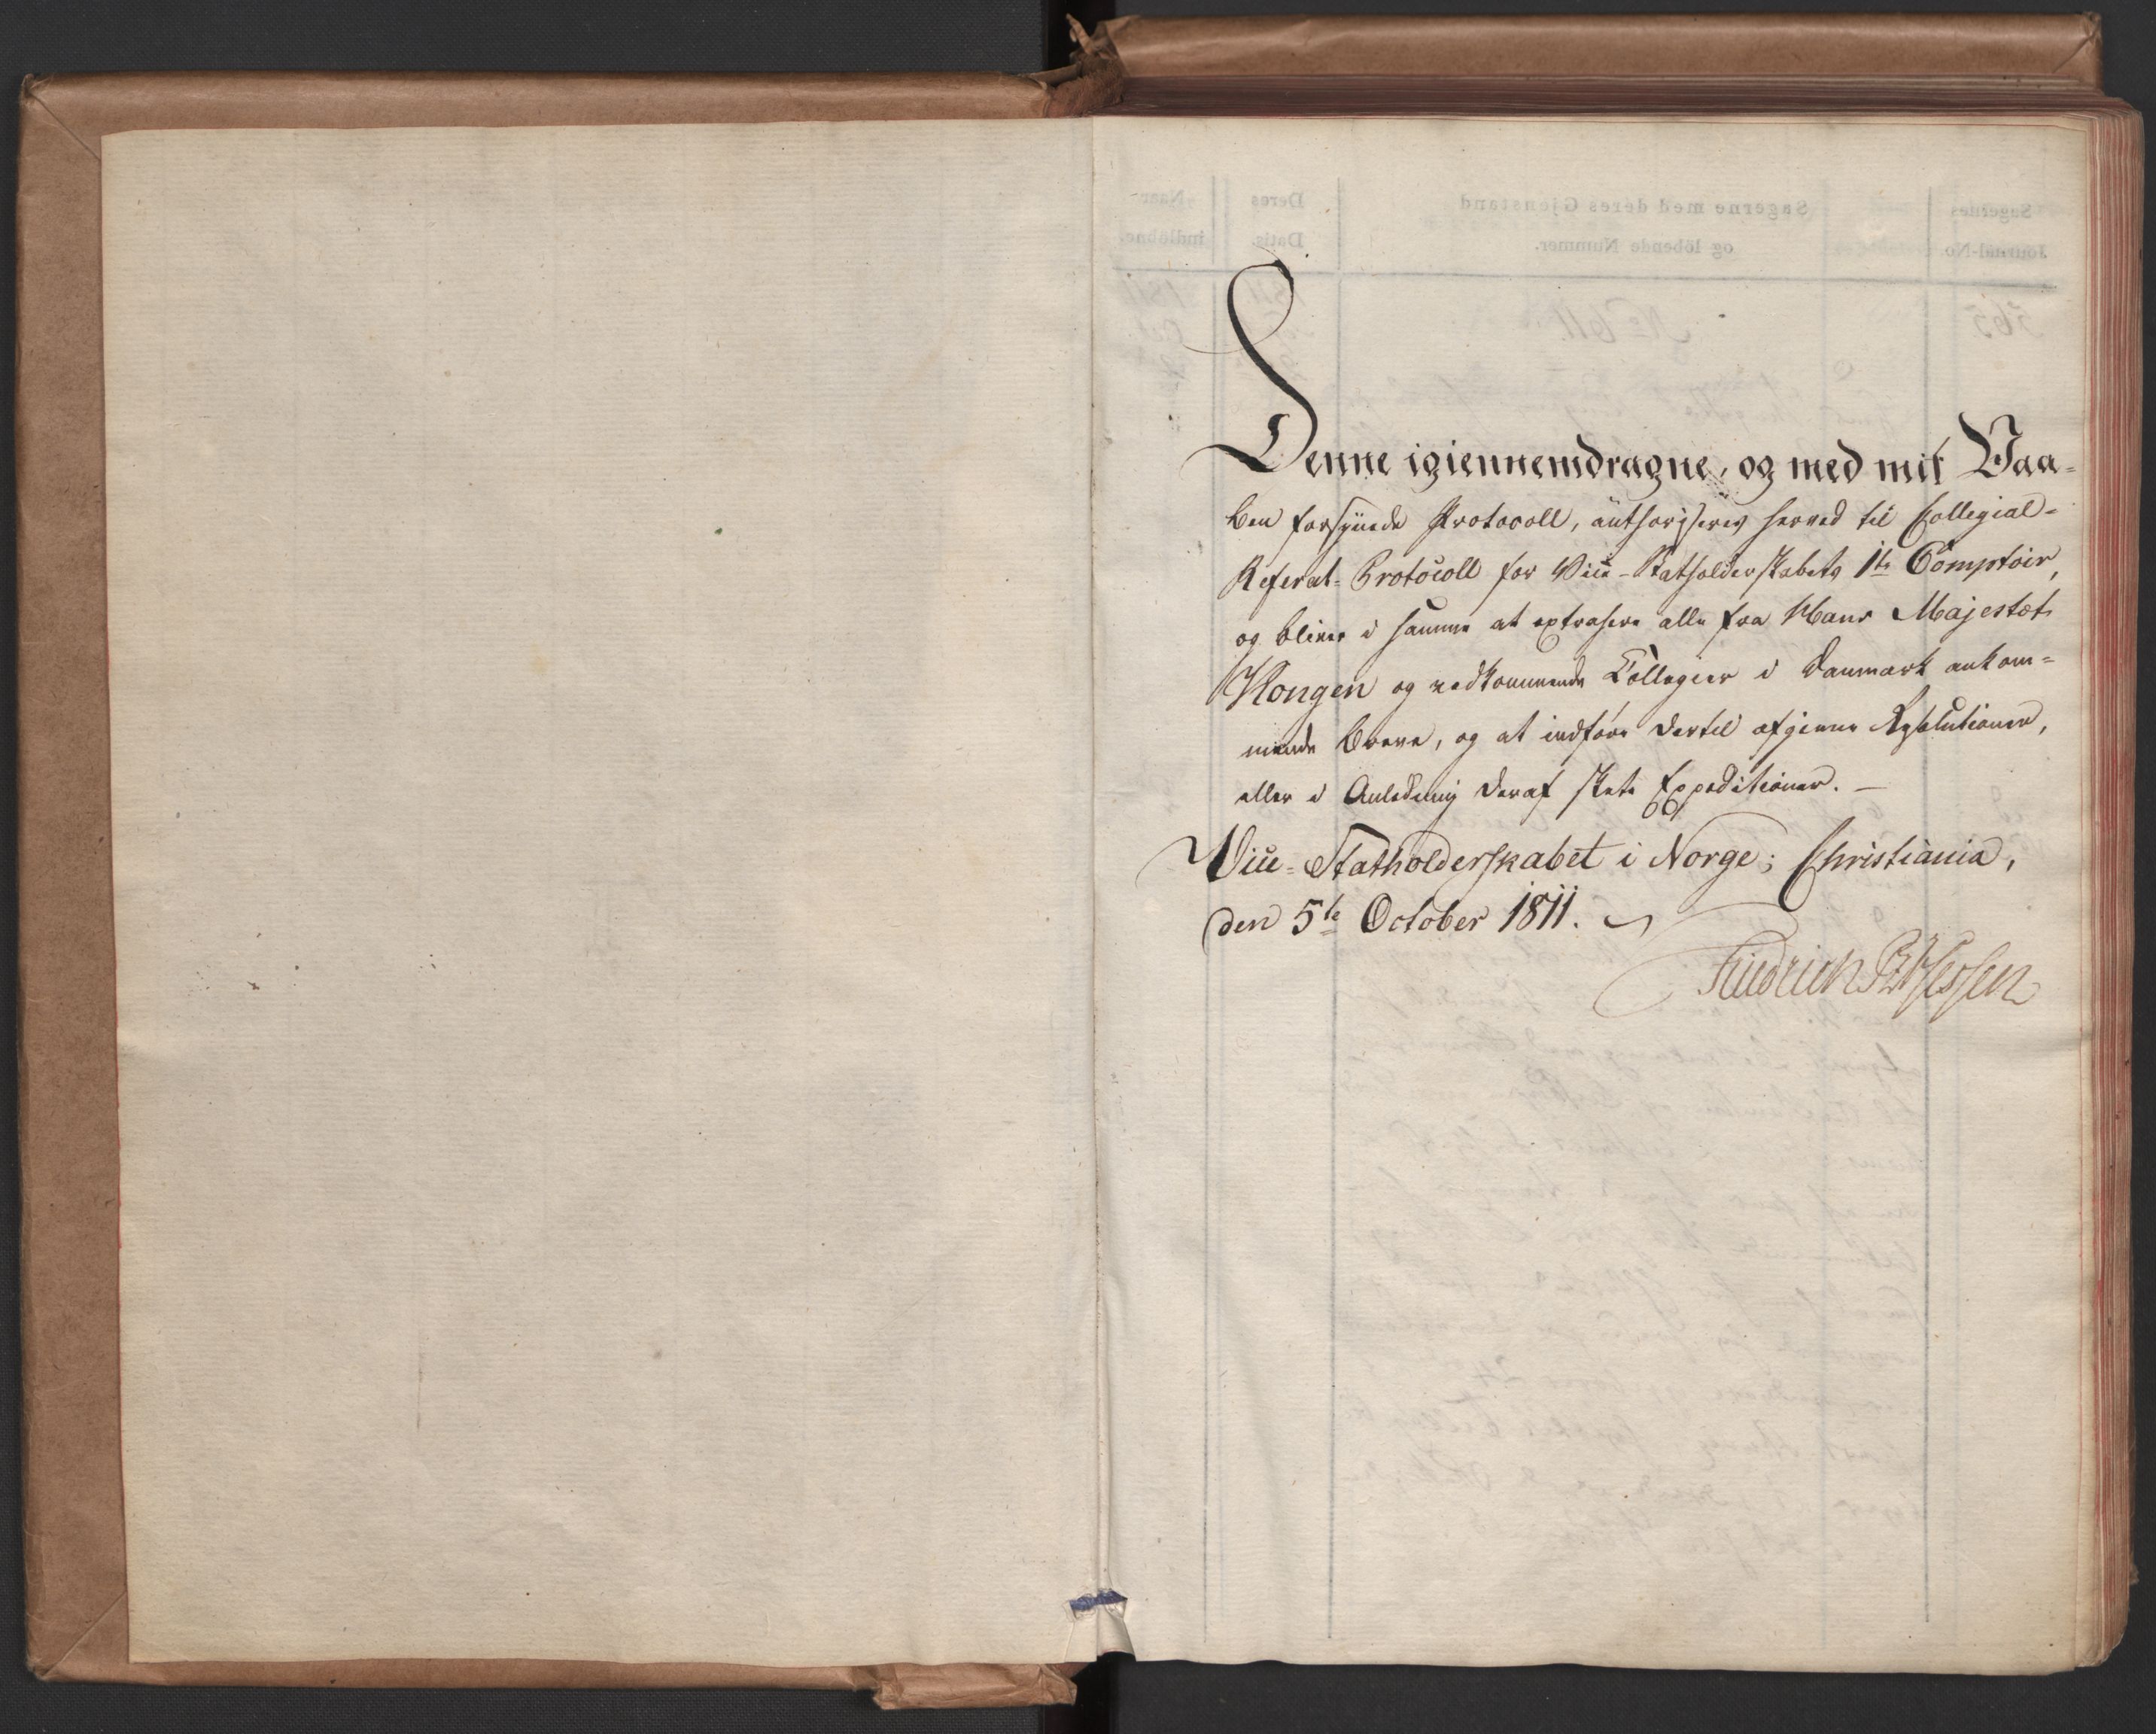 Denne igiennemdragne, og med mit Vaa=
ben forsÿnede Protocoll, authoriseres herved til Collegial=
Referat=Protocoll for Vice-Statholderskabets 1te Comptoir,
og bliver i samme at extrahere alle fra Hans Majestæt
Kongen og vedkommende Collegier i Danmark ankom=
mende Breve, og at indføre dertil afgivne Resolutioner,
eller i Anledning deraf skete Expeditioner. —
Vice=Statholderskabet i Norge; Christiania,
den 5te October 1811.
Friedrich PzHessen